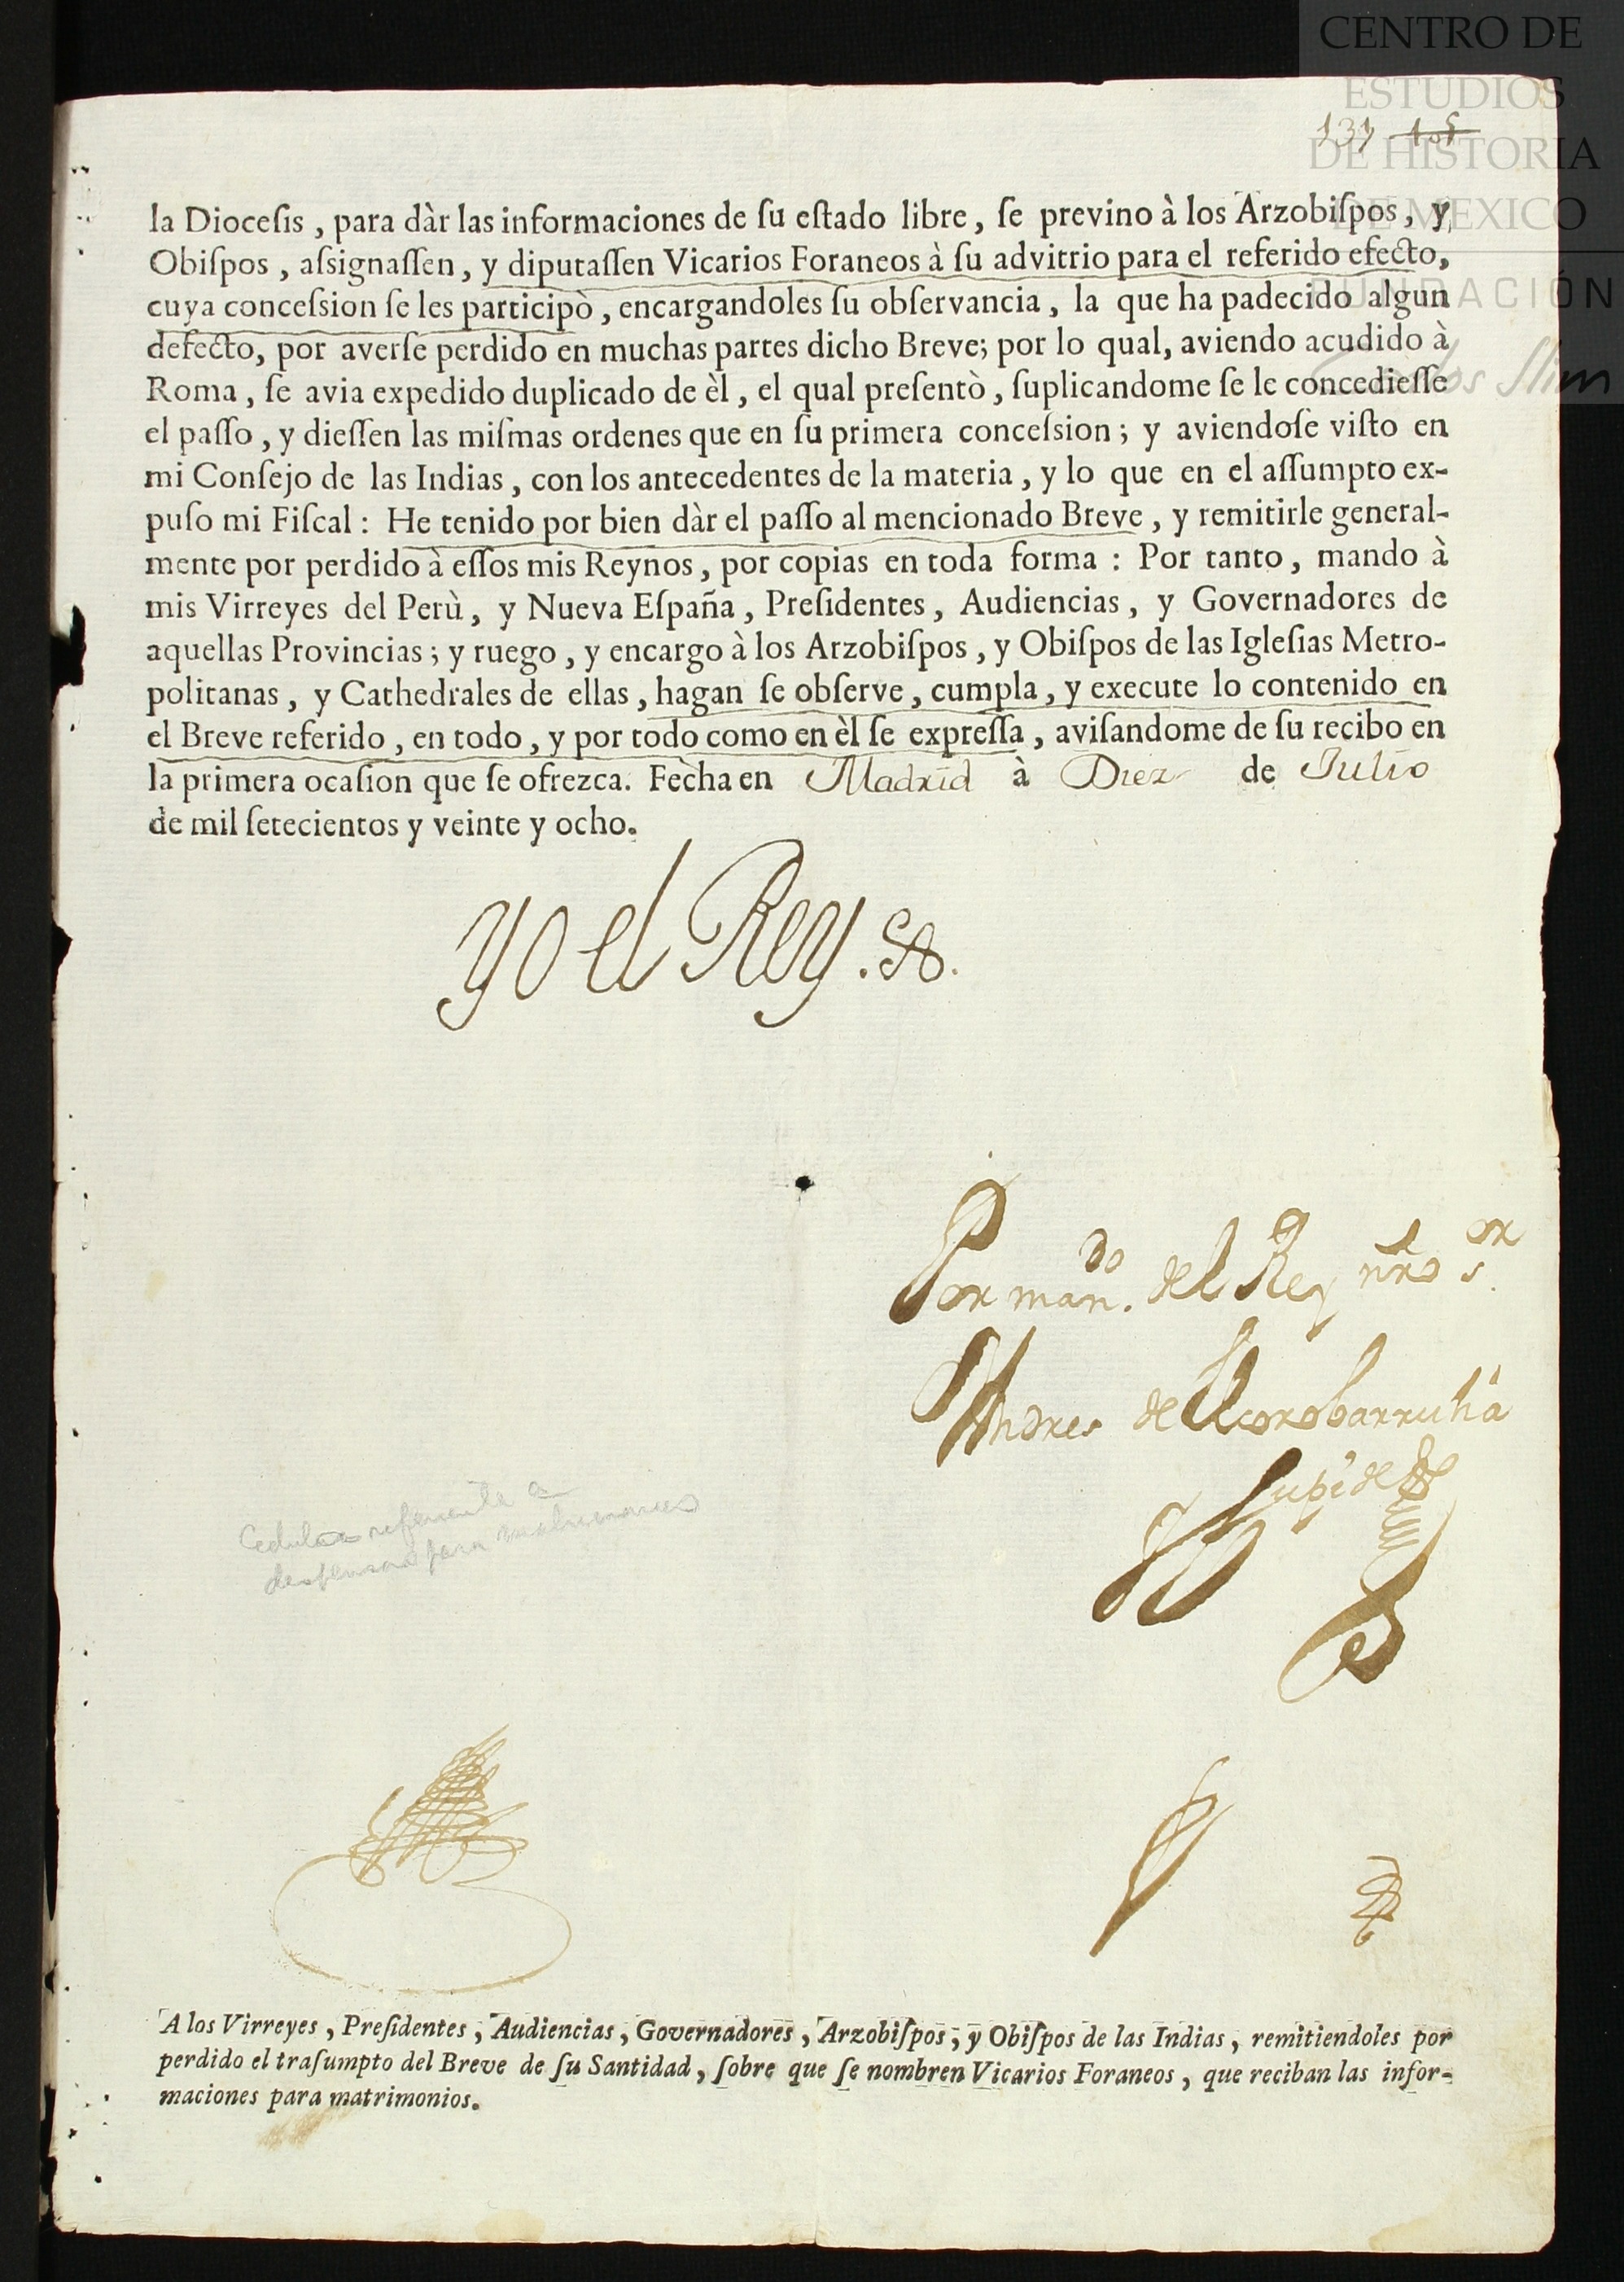 CENTRO DE
ESTUDIOS
DE HISTORIA
DE MEXICO
FUNDACIÓN
Carlos Slim
131 105
la Dioceſis, para dàr las informaciones de ſu eſtado libre, ſe previno à los Arzobiſpos, y
Obiſpos, aſsignaſſen, y diputaſſen Vicarios Foraneos à ſu advitrio para el referido efecto,
cuya conceſsion ſe les participò, encargandoles ſu obſervancia, la que ha padecido algun
defecto, por averſe perdido en muchas partes dicho Breve; por lo qual, aviendo acudido à
Roma, ſe avia expedido duplicado de èl, el qual preſentò, ſuplicandome ſe le concedieſſe
el paſſo, y dieſſen las miſmas ordenes que en ſu primera conceſsion; y aviendoſe viſto en
mi Conſejo de las Indias, con los antecedentes de la materia, y lo que en el aſſumpto ex-
puſo mi Fiſcal: He tenido por bien dàr el paſſo al mencionado Breve, y remitirle general-
mente por perdido à eſſos mis Reynos, por copias en toda forma: Por tanto, mando à
mis Virreyes del Perù, y Nueva Eſpaña, Preſidentes, Audiencias, y Governadores de
aquellas Provincias; y ruego, y encargo à los Arzobiſpos, y Obiſpos de las Igleſias Metro-
politanas, y Cathedrales de ellas, hagan ſe obſerve, cumpla, y execute lo contenido en
el Breve referido, en todo, y por todo como en èl ſe expreſſa, aviſandome de ſu recibo en
la primera ocaſion que ſe ofrezca. Fecha en Madrid à Diez de Julio
de mil ſetecientos y veinte y ocho.
Yo el Rey.
Por man.do del Rey nro s.or
Andres de
Cedula referente a
dispensas para matrimonios
A los Virreyes, Preſidentes, Audiencias, Governadores, Arzobiſpos, y Obiſpos de las Indias, remitiendoles por
perdido el traſumpto del Breve de ſu Santidad, ſobre que ſe nombren Vicarios Foraneos, que reciban las infor-
maciones para matrimonios.